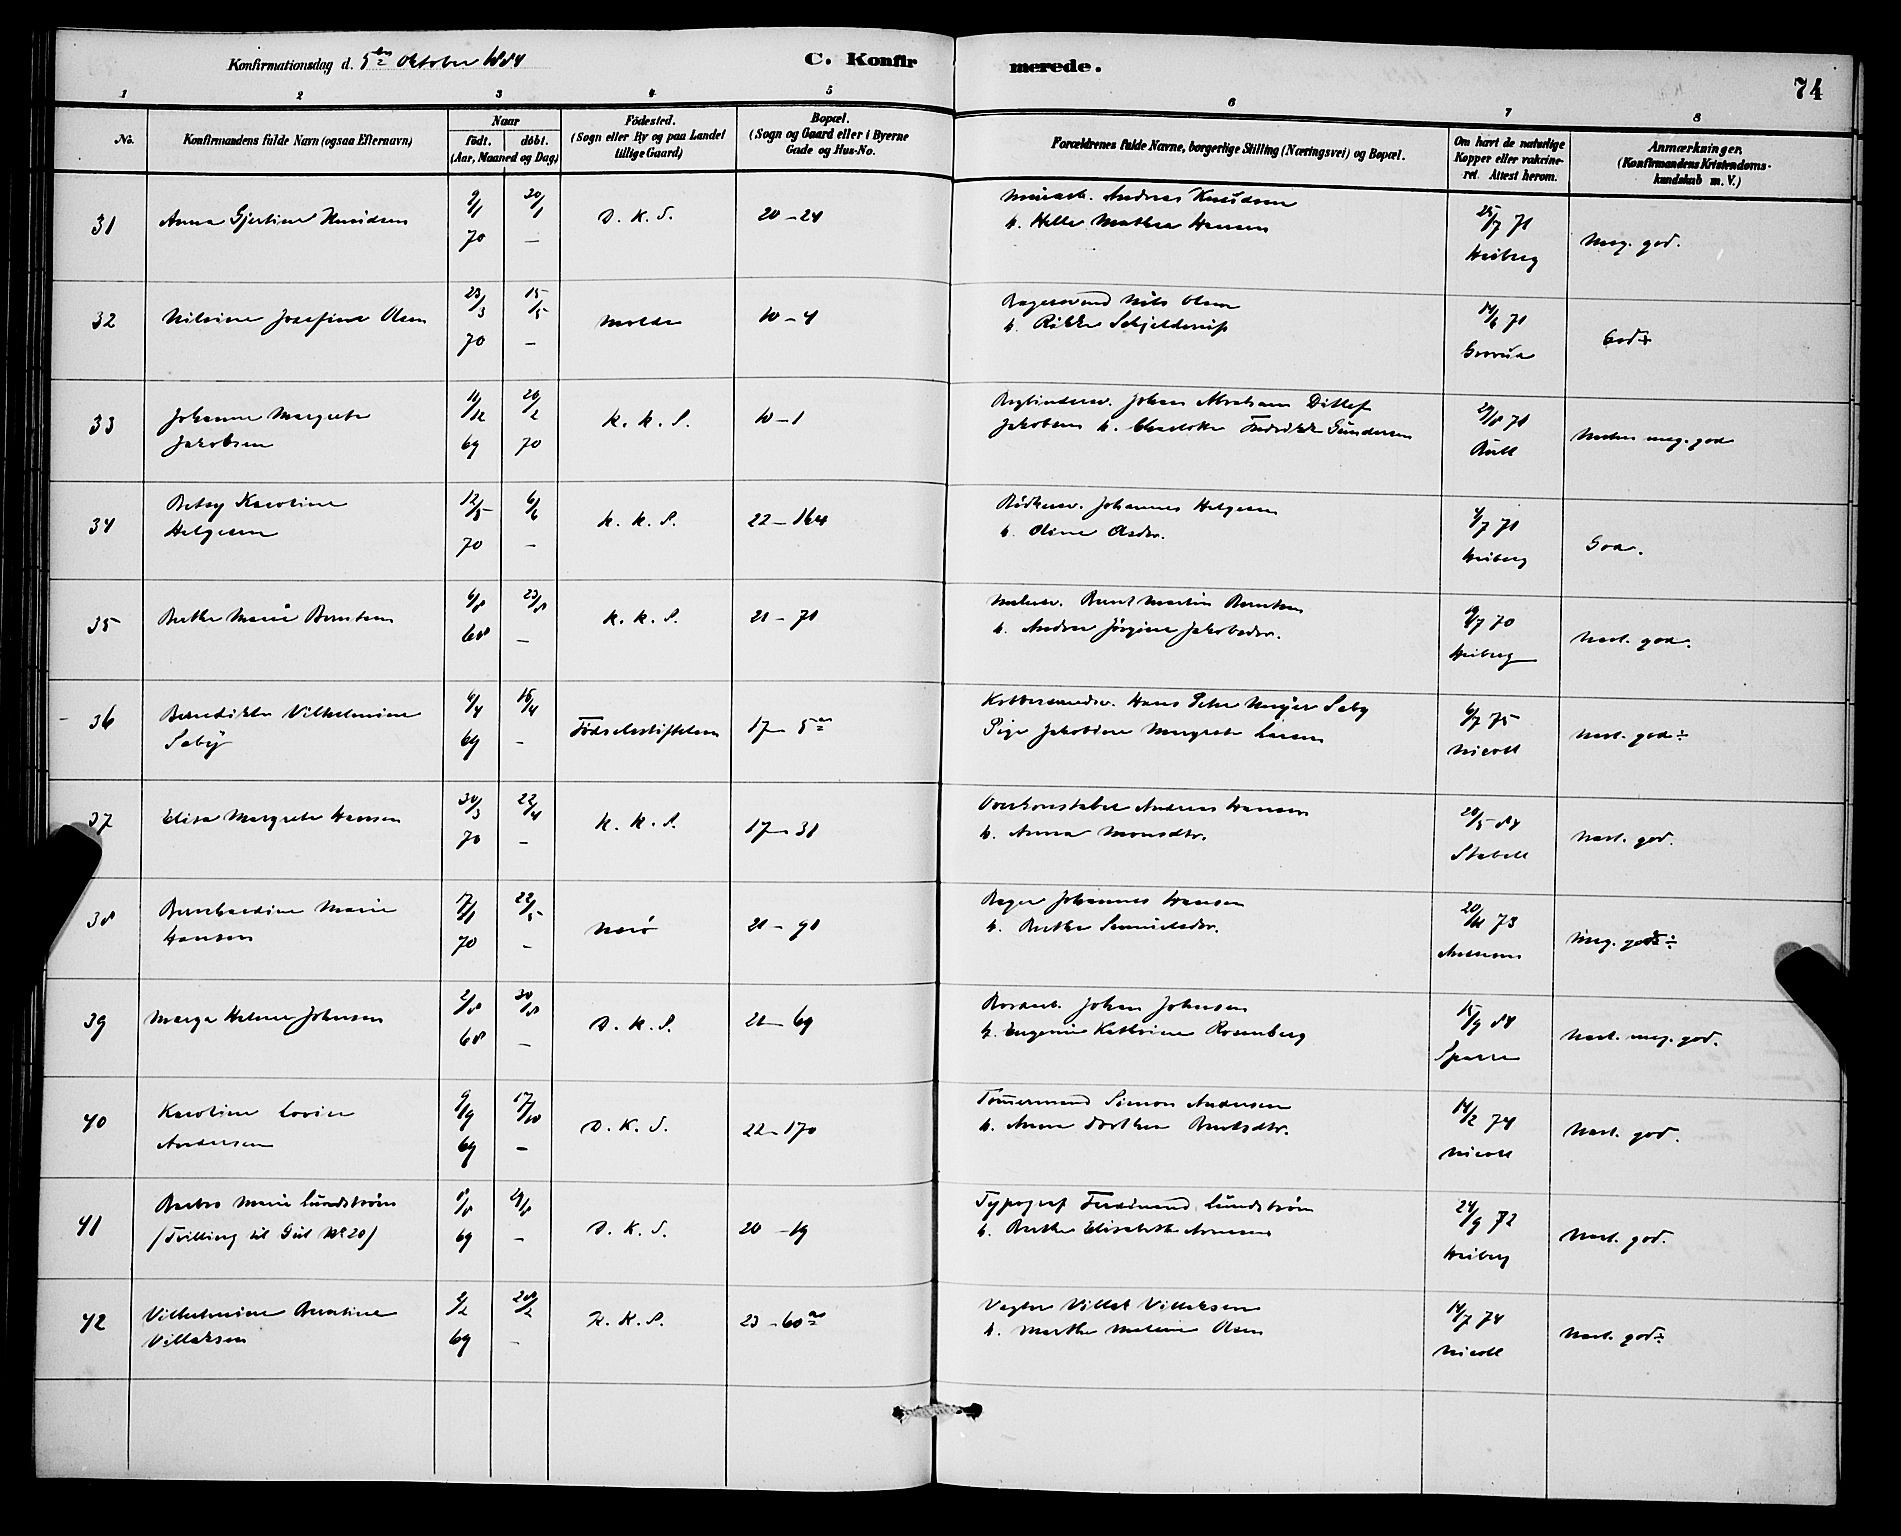 Konfirmationsdag d. 5te Oktober 1884
C. Konfirmerede.
74
1 2 3 4 5 6 7 8
No.
Konfirmandens fulde Navn (ogsaa Efternavn)
Naar
födt. döbt.
(Aar, Maaned og Dag)
Födested.
(Sogn eller By og paa Landet
tillige Gaard)
Bopæl.
(Sogn og Gaard eller i Byerne
Gade og Hus-No.
Forældrenes fulde Navne, borgerlige Stilling (Næringsvei) og Bopæl.
Om havt de naturlige
Kopper eller vakcine-
ret. Attest herom.
Anmærkninger.
(Konfirmandens Kristendoms-
kundskab m. V.)
31 Anna Gjertine Knudsen 9/1 70 20/1 — D. K. S. 20 - 24
Andreas Knudsen
h. Helle Mathea Hansen
25/7 71 Heiberg
Meg. god.
32 Nilsine Josefine Olsen 23/3 70 15/5 — Molde 10 - 4
Bagersvend Nils Olsen
h. Rikke Schjelderup
14/6 71
God÷
33 Johanne Margrete
Jakobsen
11/12 69 20/2 70 K. K. S. 10 - 1
Bogbindersv. Johan Abraham Ditlef
Jakobsen h. Fredrikke Gundersen
29/8 71
meg. god
34 Betsy Karoline
Helgesen
12/5 70 6/6 — K. K. S. 22 - 164
Bödkersv. Johannes Helgesen
h. Oline Olsdr.
4/7 71 Heiberg
God.
35 Berthe Marie Berntsen 6/8 68 23/8 — K. K. S. 21 - 71
Malersv. Bernt Martin Berntsen
h. Andrea Jörgine Jakobsdr.
9/7 70 Heiberg
Næst. god.
36 Benedikte Vilhelmine
Seby
6/4 69 16/4 — Födselsstiftelsen 17 - 5a
Hans Peter Meyer Seby
Pige Jakobine Margrete Larsen
6/7 75 Nicoll
Næst. god÷
37 Elisa Margrete Hansen 30/3 70 22/4 — K. K. S. 17 - 31
Overkonstabel Andreas Hansen
h. Anna Monsdtr.
20/5 84 Stabell
Næst. god.
38 Bernhardine Marie
Hansen
17/1 70 22/5 — Norö 21 - 91
Bager Johannes Hansen
h. Berthe Samuelsdr.
20/11 73
Meg. god÷
39 Helene Johnsen 2/8 68 30/8 — D. K. S. 21 - 69
Johan Johnsen
h. Eugenie Kathrine Rosenberg
15/9 84 Sparre
Næst. meg. god.
40 Karoline Lovise
Andersen
9/9 69 17/10 — D. K. S. 22 - 170
Tömmermand Simon Andersen
h. Anne Dorthea Berntsdtr.
14/2 74 Nicoll
Næst. god.
41 Barbro Marie Lundström
(Tvilling til Gut No 20)
8/8 69 29/8 — D. K. S. 20 - 19
Typograf Ferdinand Lundström
h. Berthe Elisabeth Arnesen
24/9 72 Heiberg
Næst. god.
42 Vilhelmine Berntine
Villaksen
2/2 69 28/2 — K. K. S. 23 - 60a
Vægter Villak Villaksen
h. Marthe Malene Olsen
14/7 74 Nicoll
Næst. god÷